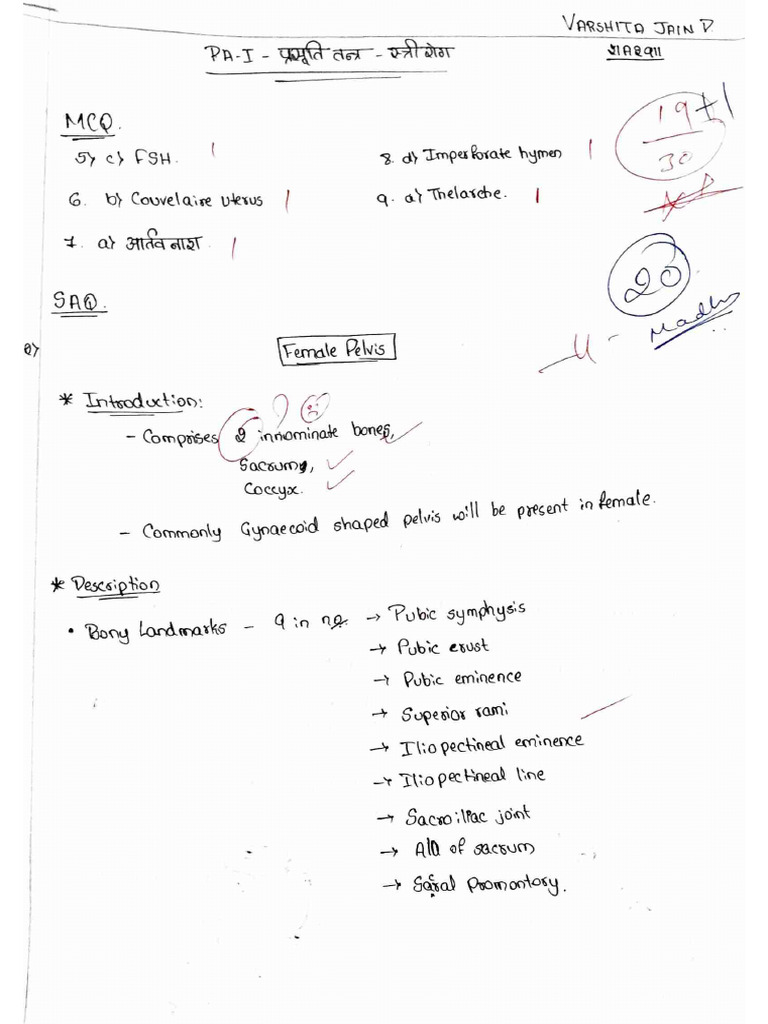 VARSHITA JAIN D
PA-I - प्रसूति तन्त्र - स्त्री रोग
MCQ.
5) c) FSH. 1
8. d) Imperforate hymen 1
19+1
30
6. b) Couvelaire uterus 1
9. a) Thelarche. 1
7. a) आर्तव नाश. 1
20
Madhu
SAQ.
2) Female Pelvis
* Introduction:
- Comprises 2 innominate bones,
Sacrum,
Coccyx.
- Commonly Gynaecoid shaped pelvis will be present in female.
* Description
• Bony Landmarks - 9 in no. → Pubic symphysis
→ Pubic crust
→ Pubic eminence
→ Superior rami
→ Iliopectineal eminence
→ Iliopectineal line
→ Sacroiliac joint
→ Ala of sacrum
→ Sacral Promontory.